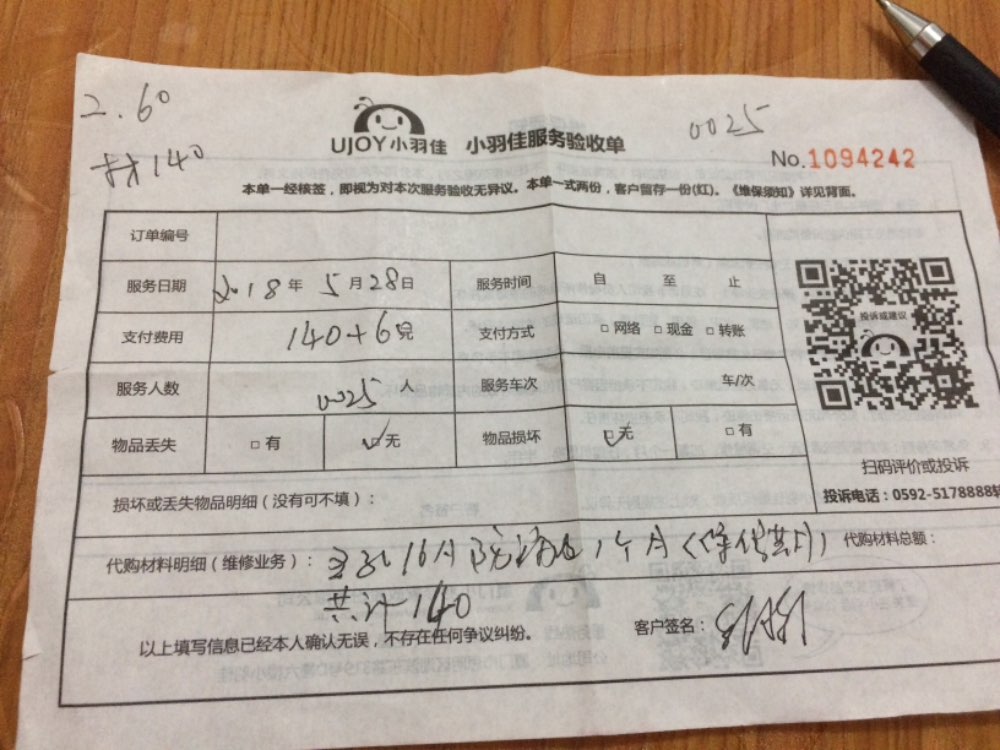 2.60
0025
UJOY小羽佳 小羽佳服务验收单
材140
No.1094242
本单一经核签，即视为对本次服务验收无异议。本单一式两份，客户留存一份(红)。《维保须知》详见背面。
订单编号
服务日期 2018年 5月28日 服务时间 自 至 止
支付费用 140+6 支付方式 □网络 □现金 □转账
投诉或建议
服务人数 0025 服务车次 车/次
物品丢失 □有 ☑无 物品损坏 ☑无 □有
扫码评价或投诉
投诉电话：0592-5178888转
损坏或丢失物品明细（没有可不填）：
代购材料明细（维修业务）： 1个月 代购材料总额：
共计140
以上填写信息已经本人确认无误，不存在任何争议纠纷。 客户签名：